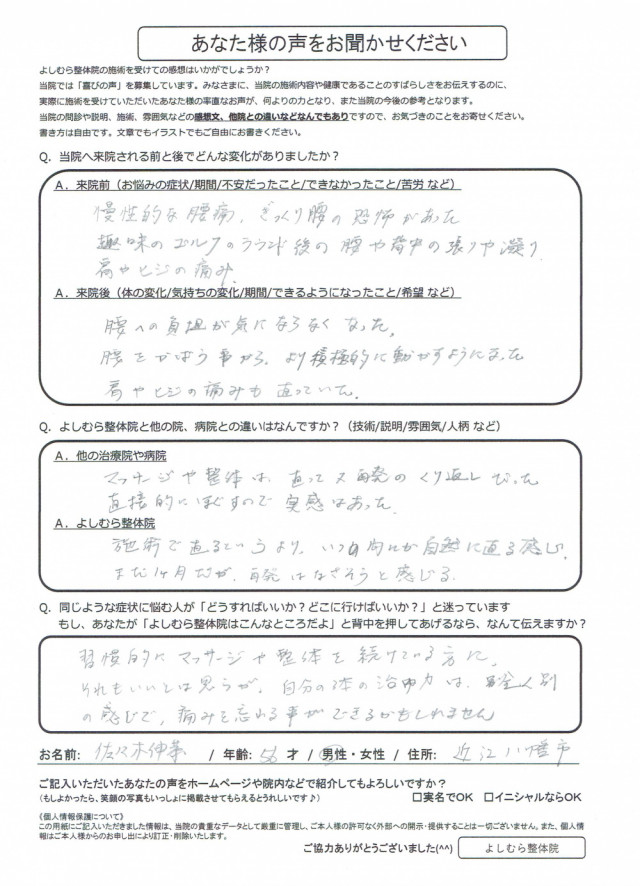 あなた様の声をお聞かせください
よしむら整体院の施術を受けての感想はいかがでしょうか？
当院では「喜びの声」を募集しています。みなさまに、当院の施術内容や健康であることのすばらしさをお伝えするのに、
実際に施術を受けていただいたあなた様の率直なお声が、何よりの力となり、また当院の今後の参考となります。
当院の問診や説明、施術、雰囲気などの感想文、他院との違いなどなんでもありですので、お気づきのことをお寄せください。
書き方は自由です。文章でもイラストでもご自由にお書きください。
Q．当院へ来院される前と後でどんな変化がありましたか？
A．来院前（お悩みの症状/期間/不安だったこと/できなかったこと/苦労 など）
慢性的な腰痛，ぎっくり腰の恐怖があった
趣味のゴルフのラウンド後の腰や背中の張りや凝り
肩やヒジの痛み
A．来院後（体の変化/気持ちの変化/期間/できるようになったこと/希望 など）
腰への負担が気にならなくなった。
腰をかばう事から、より積極的に動かすようになった
肩やヒジの痛みも直っていた。
Q．よしむら整体院と他の院、病院との違いはなんですか？（技術/説明/雰囲気/人柄 など）
A．他の治療院や病院
マッサージや整体は、直って又再発のくり返しだった
直接的にほぐすので実感はあった
A．よしむら整体院
施術で直るというより、いつの間にか自然に直る感じ．
まだ1ヶ月だが、再発はなさそうと感じる．
Q．同じような症状に悩む人が「どうすればいいか？どこに行けばいいか？」と迷っています
もし、あなたが「よしむら整体院はこんなところだよ」と背中を押してあげるなら、なんて伝えますか？
習慣的にマッサージや整体を続けている方に、
それもいいとは思うが、自分の体の治癒力は、全く別
の感じで、痛みを忘れる事ができるかもしれません
お名前： 佐々木伸 / 年齢： 56 才 / 男性・女性 / 住所： 近江八幡市
ご記入いただいたあなたの声をホームページや院内などで紹介してもよろしいですか？
（もしよかったら、笑顔の写真もいっしょに掲載させてもらえるとうれしいです♪） □実名でOK □イニシャルならOK
《個人情報保護について》
この用紙にご記入いただきました情報は、当院の貴重なデータとして厳重に管理し、ご本人様の許可なく外部への開示・提供することは一切ございません。また、個人情
報はご本人様からのお申し出により訂正・削除いたします。
ご協力ありがとうございました(^^) よしむら整体院